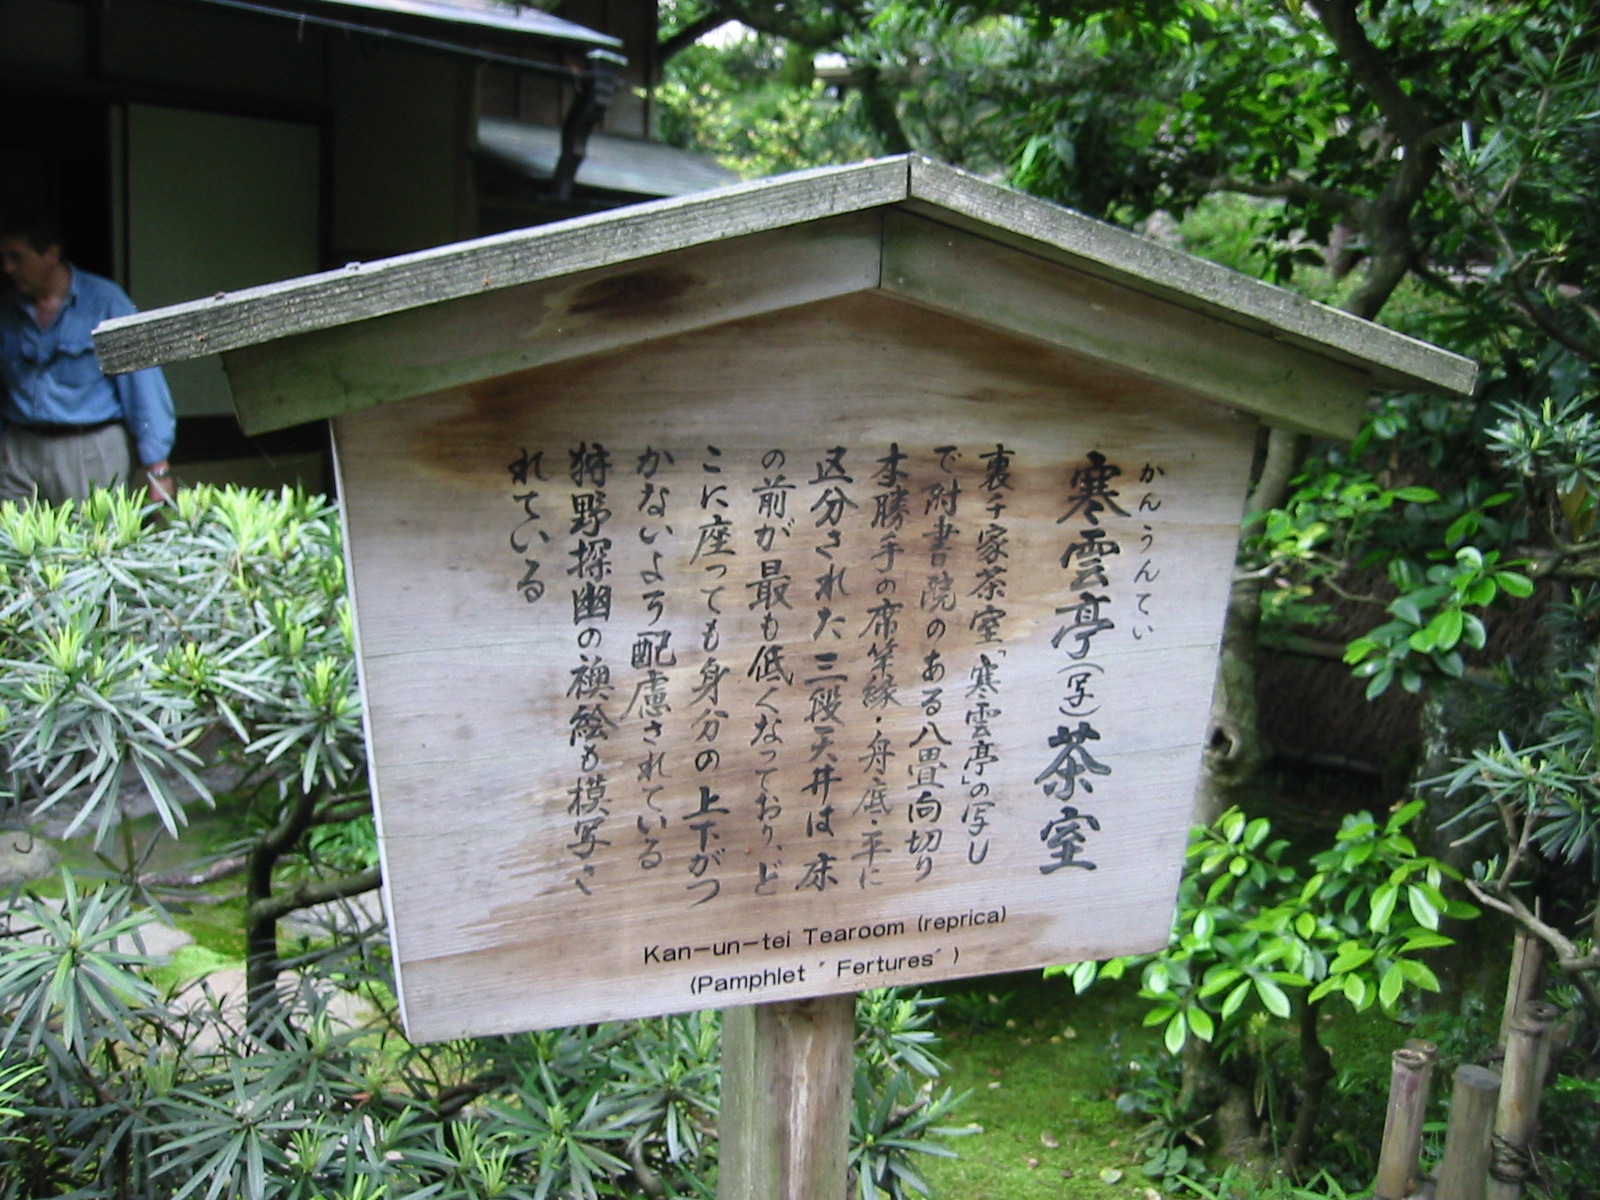 寒雲亭(写)茶室
かんうんてい
裏千家茶室「寒雲亭」の写し
で附書院のある八畳向切り
本勝手の席 竿縁・舟底・平に
区分された三段天井は床
の前が最も低くなっており、ど
こに座っても身分の上下がつ
かないよう配慮されている
狩野探幽の襖絵も模写さ
れている
Kan-un-tei Tearoom (reprica)
(Pamphlet ″Fertures″)